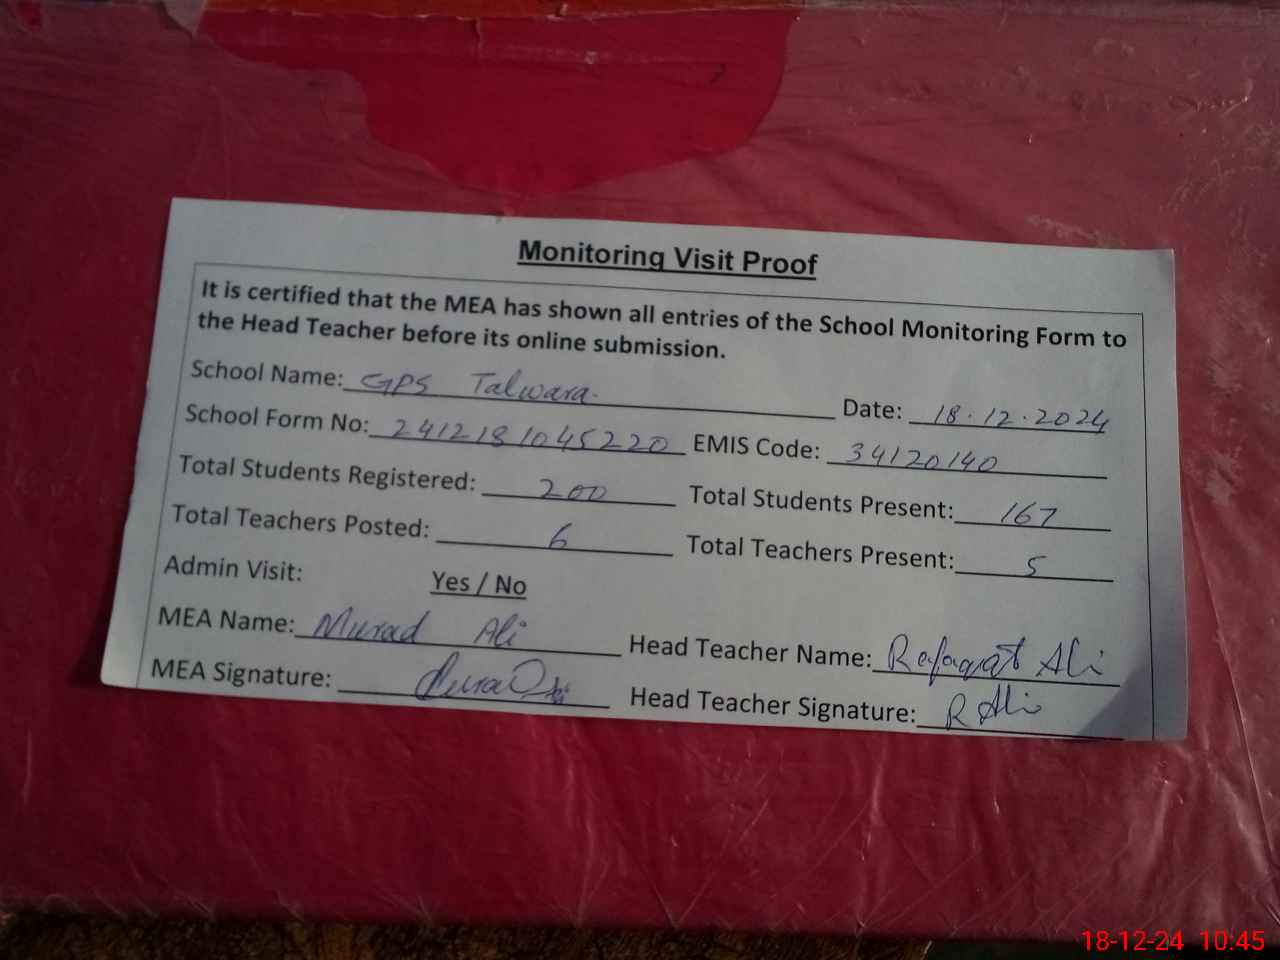 Monitoring Visit Proof
It is certified that the MEA has shown all entries of the School Monitoring Form to
the Head Teacher before its online submission.
School Name: GPS Talwara. Date: 18.12.2024
School Form No: 2412181045220 EMIS Code: 34120140
Total Students Registered: 200 Total Students Present: 167
Total Teachers Posted: 6 Total Teachers Present: 5
Admin Visit: Yes / No
MEA Name: Murad Ali Head Teacher Name: Refaqat Ali
MEA Signature: Head Teacher Signature: R Ali
18-12-24 10:45